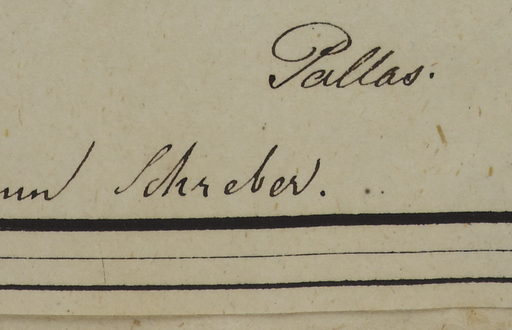 Pallas.
Schreber.